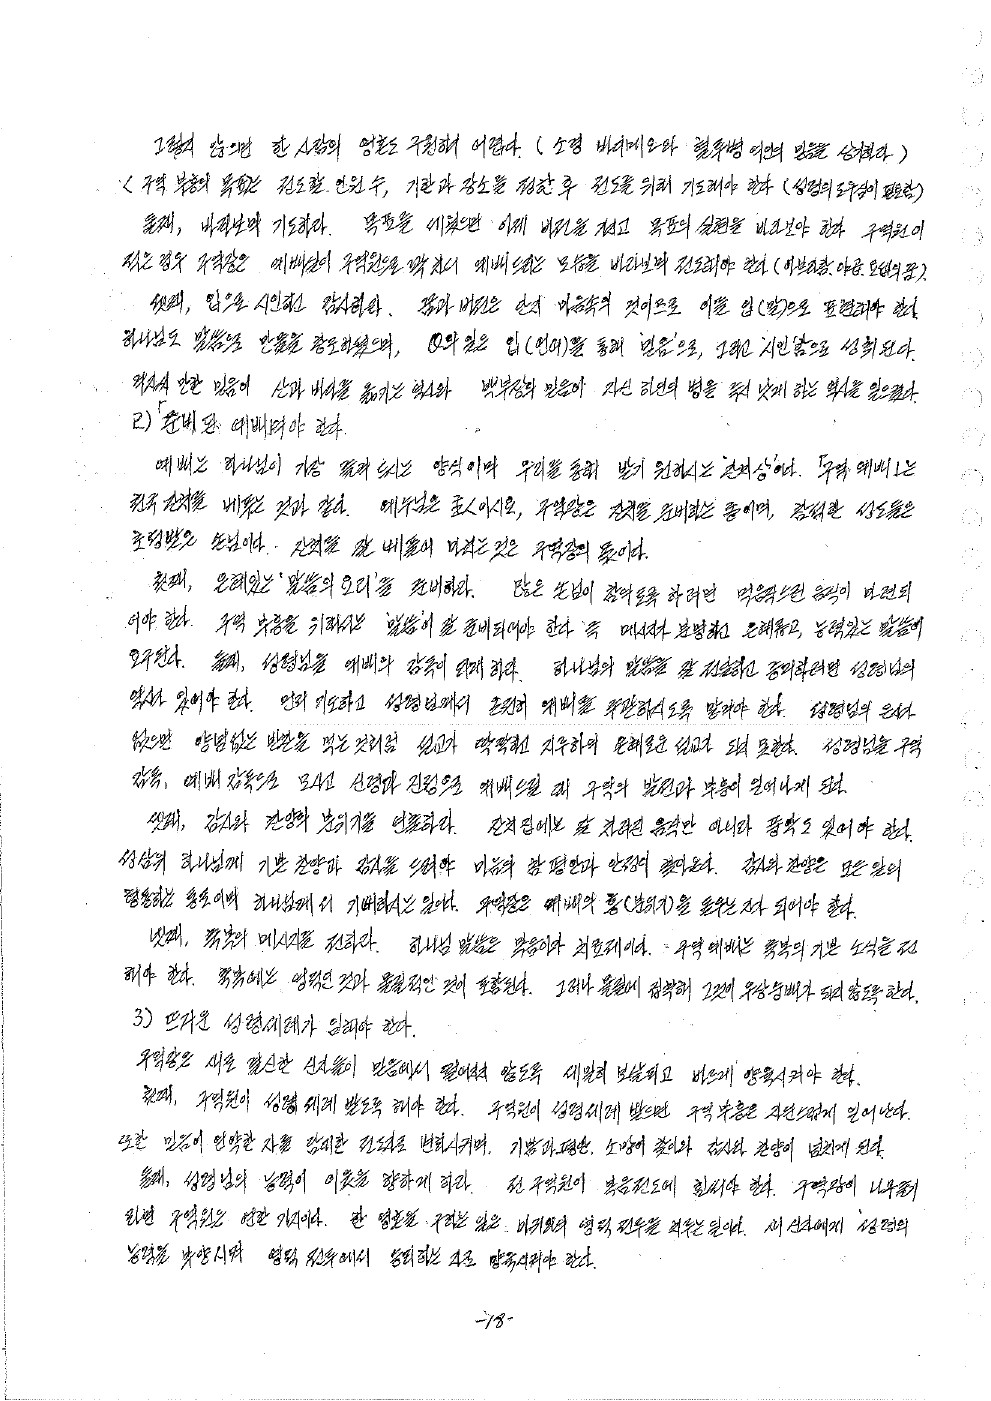 그렇지 않으면 한 사람의 영혼도 구원하기 어렵다. (소경 바디메오와 혈루병 여인의 믿음을 상기하라)
< 구역 부흥의 목표는 전도할 인원수, 기간과 장소를 정한 후 전도를 위해 기도해야 한다 (성령의 도우심이 필요함)
둘째, 바라보며 기도하라. 목표를 세웠으면 이제 비전을 갖고 목표의 실현을 바라보아야 한다 구역원이
적은 경우 구역장은 예배실이 구역원으로 꽉 차서 예배드리는 모습을 바라보며 전도해야 한다 (아브라함.야곱.요셉의 꿈).
셋째, 입으로 시인하고 감사하라. 꿈과 비전은 단지 마음속의 것이므로 이를 입(말)으로 표현해야 한다.
하나님도 말씀으로 만물을 창조하셨으며, 일은 입(언어)을 통해 '믿음'으로, 그리고 '시인'함으로 성취된다.
겨자씨 만한 믿음이 산과 바다를 옮기는 역사와 백부장의 믿음이 자신 하인의 병을 즉시 낫게 하는 역사를 일으켰다.
2) 「준비된 예배」여야 한다.
예배는 하나님이 가장 즐겨 드시는 양식이며 우리를 통해 받기 원하시는 '잔치상'이다. 「구역 예배」는
천국 잔치를 베푸는 것과 같다. 예수님은 주人이시요, 구역장은 잔치를 준비하는 종이며, 참석한 성도들은
초청받은 손님이다. 잔치를 잘 베풀어 먹이는 것은 구역장의 몫이다.
첫째, 은혜있는 '말씀의 요리'를 준비하라. 많은 손님이 참여토록 하려면 먹음직스런 음식이 마련되
어야 한다. 구역 부흥을 위해서는 '말씀'이 잘 준비되어야 한다 즉 메시지가 분명하고 은혜롭고, 능력있는 말씀이
요구된다. 둘째, 성령님을 예배의 감독이 되게 하라. 하나님의 말씀을 잘 전달하고 증거하려면 성령님의
역사가 있어야 한다. 먼저 기도하고 성령님께서 온전히 예배를 주관하시도록 맡겨야 한다. 성령님의 은혜가
없으면 양념없는 반찬을 먹는 것처럼 설교가 딱딱하고 지루하여 은혜로운 설교가 되지 못한다. 성령님을 구역
감독, 예배 감독으로 모시고 신령과 진정으로 예배드릴 때 구역의 발전과 부흥이 일어나게 된다.
셋째, 감사와 찬양의 분위기를 연출하라. 잔치집에는 잘 차려진 음식만 아니라 풍악도 있어야 한다.
성삼위 하나님께 기쁜 찬양과 감사를 드려야 마음의 참 평안과 안정이 찾아온다. 감사와 찬양은 모든 일의
형통하는 통로이며 하나님께서 기뻐하시는 일이다. 구역장은 예배의 흥(분위기)을 돋우는 자가 되어야 한다.
넷째, 축복의 메시지를 전하라. 하나님 말씀은 복음이자 치료제이다. 구역예배는 축복의 기쁜 소식을 전
해야 한다. 축복에는 영적인 것과 물질적인 것이 포함된다. 그러나 물질에 집착해 그것이 우상숭배가 되지 않도록 한다.
3) 뜨거운 성령세례가 임해야 한다.
구역장은 새로 결신한 신자들이 믿음에서 떨어지지 않도록 세밀히 보살피고 바르게 양육시켜야 한다.
첫째, 구역원이 성령세례 받도록 해야 한다. 구역원이 성령세례 받으면 구역 부흥은 자연스럽게 일어난다.
또한 믿음이 연약한 자를 담대한 전도자로 변화시키며, 기쁨과 평안, 소망이 찾아와 감사와 찬양이 넘치게 된다.
둘째, 성령님의 능력이 이웃을 향하게 하라. 전 구역원이 복음전도에 힘써야 한다. 구역장이 나무줄기
라면 구역원은 연한 가지이다. 한 영혼을 구하는 일은 마귀와의 영적 전투를 치루는 일이다. 새 신자에게 '성령의
능력'을 부양시켜 영적 전투에서 승리하는 자로 양육시켜야 한다.
-18-